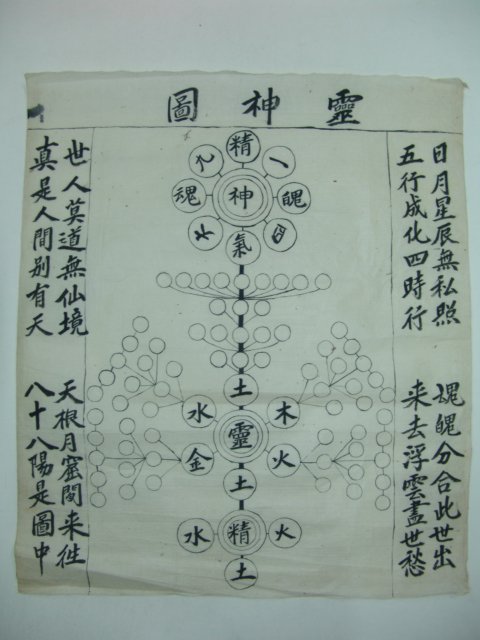 靈神圖
日月星辰無私照
五行成化四時行
魂魄分合此世出
来去浮雲盡世愁
精
一
魂
神
魄
氣
土
水
木
靈
金
火
土
水
精
火
土
世人莫道無仙境
真是人間别有天
天根月窟間来徃
八十八陽是圖中